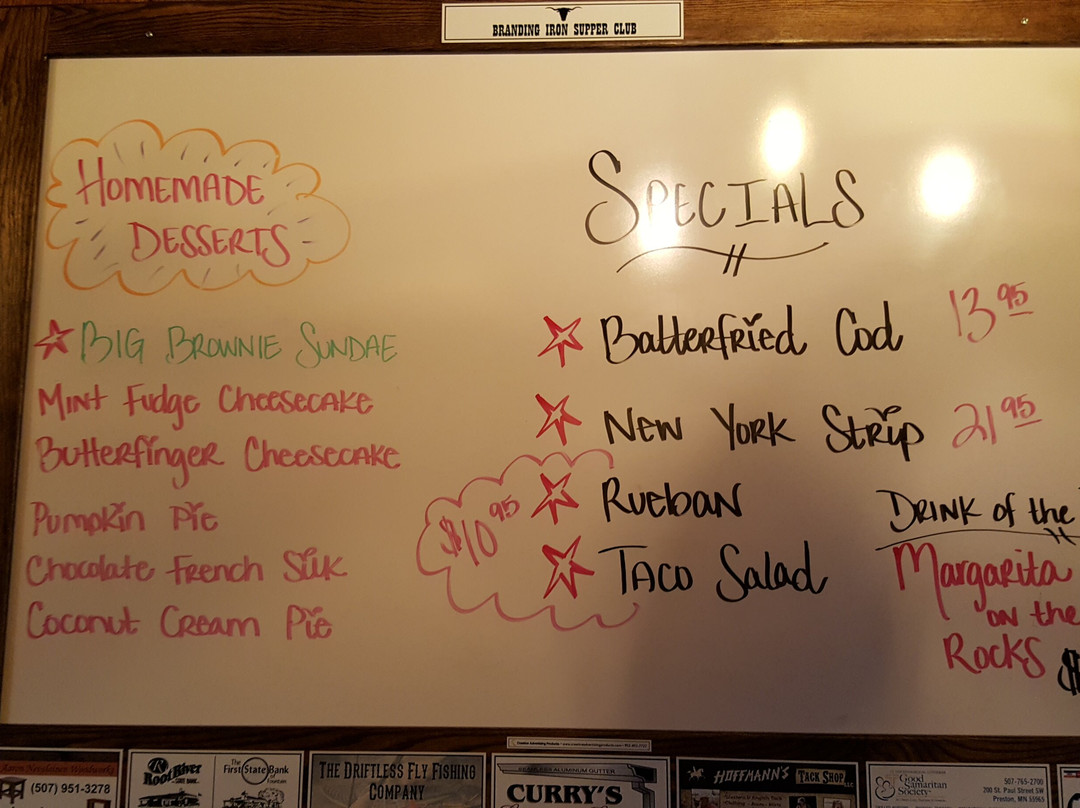 BRANDING IRON SUPPER CLUB
HOMEMADE
DESSERTS
BIG BROWNIE SUNDAE
Mint Fudge Cheesecake
Butterfinger Cheesecake
Pumpkin Pie
Chocolate French Silk
Coconut Cream Pie
SPECIALS
Batterfried Cod 13.95
New York Strip 21.95
Rueban
Taco Salad
$10.95
DRINK of the
Margarita
on the
Rocks $
(507) 951-3278
Root River
The
First State Bank
THE DRIFTLESS FLY FISHING
COMPANY
SEAMLESS ALUMINUM GUTTER
CURRY'S
HOFFMANN'S TACK SHOP
Good
Samaritan
Society
507-765-2700
200 St. Paul Street SW
Preston, MN 55965